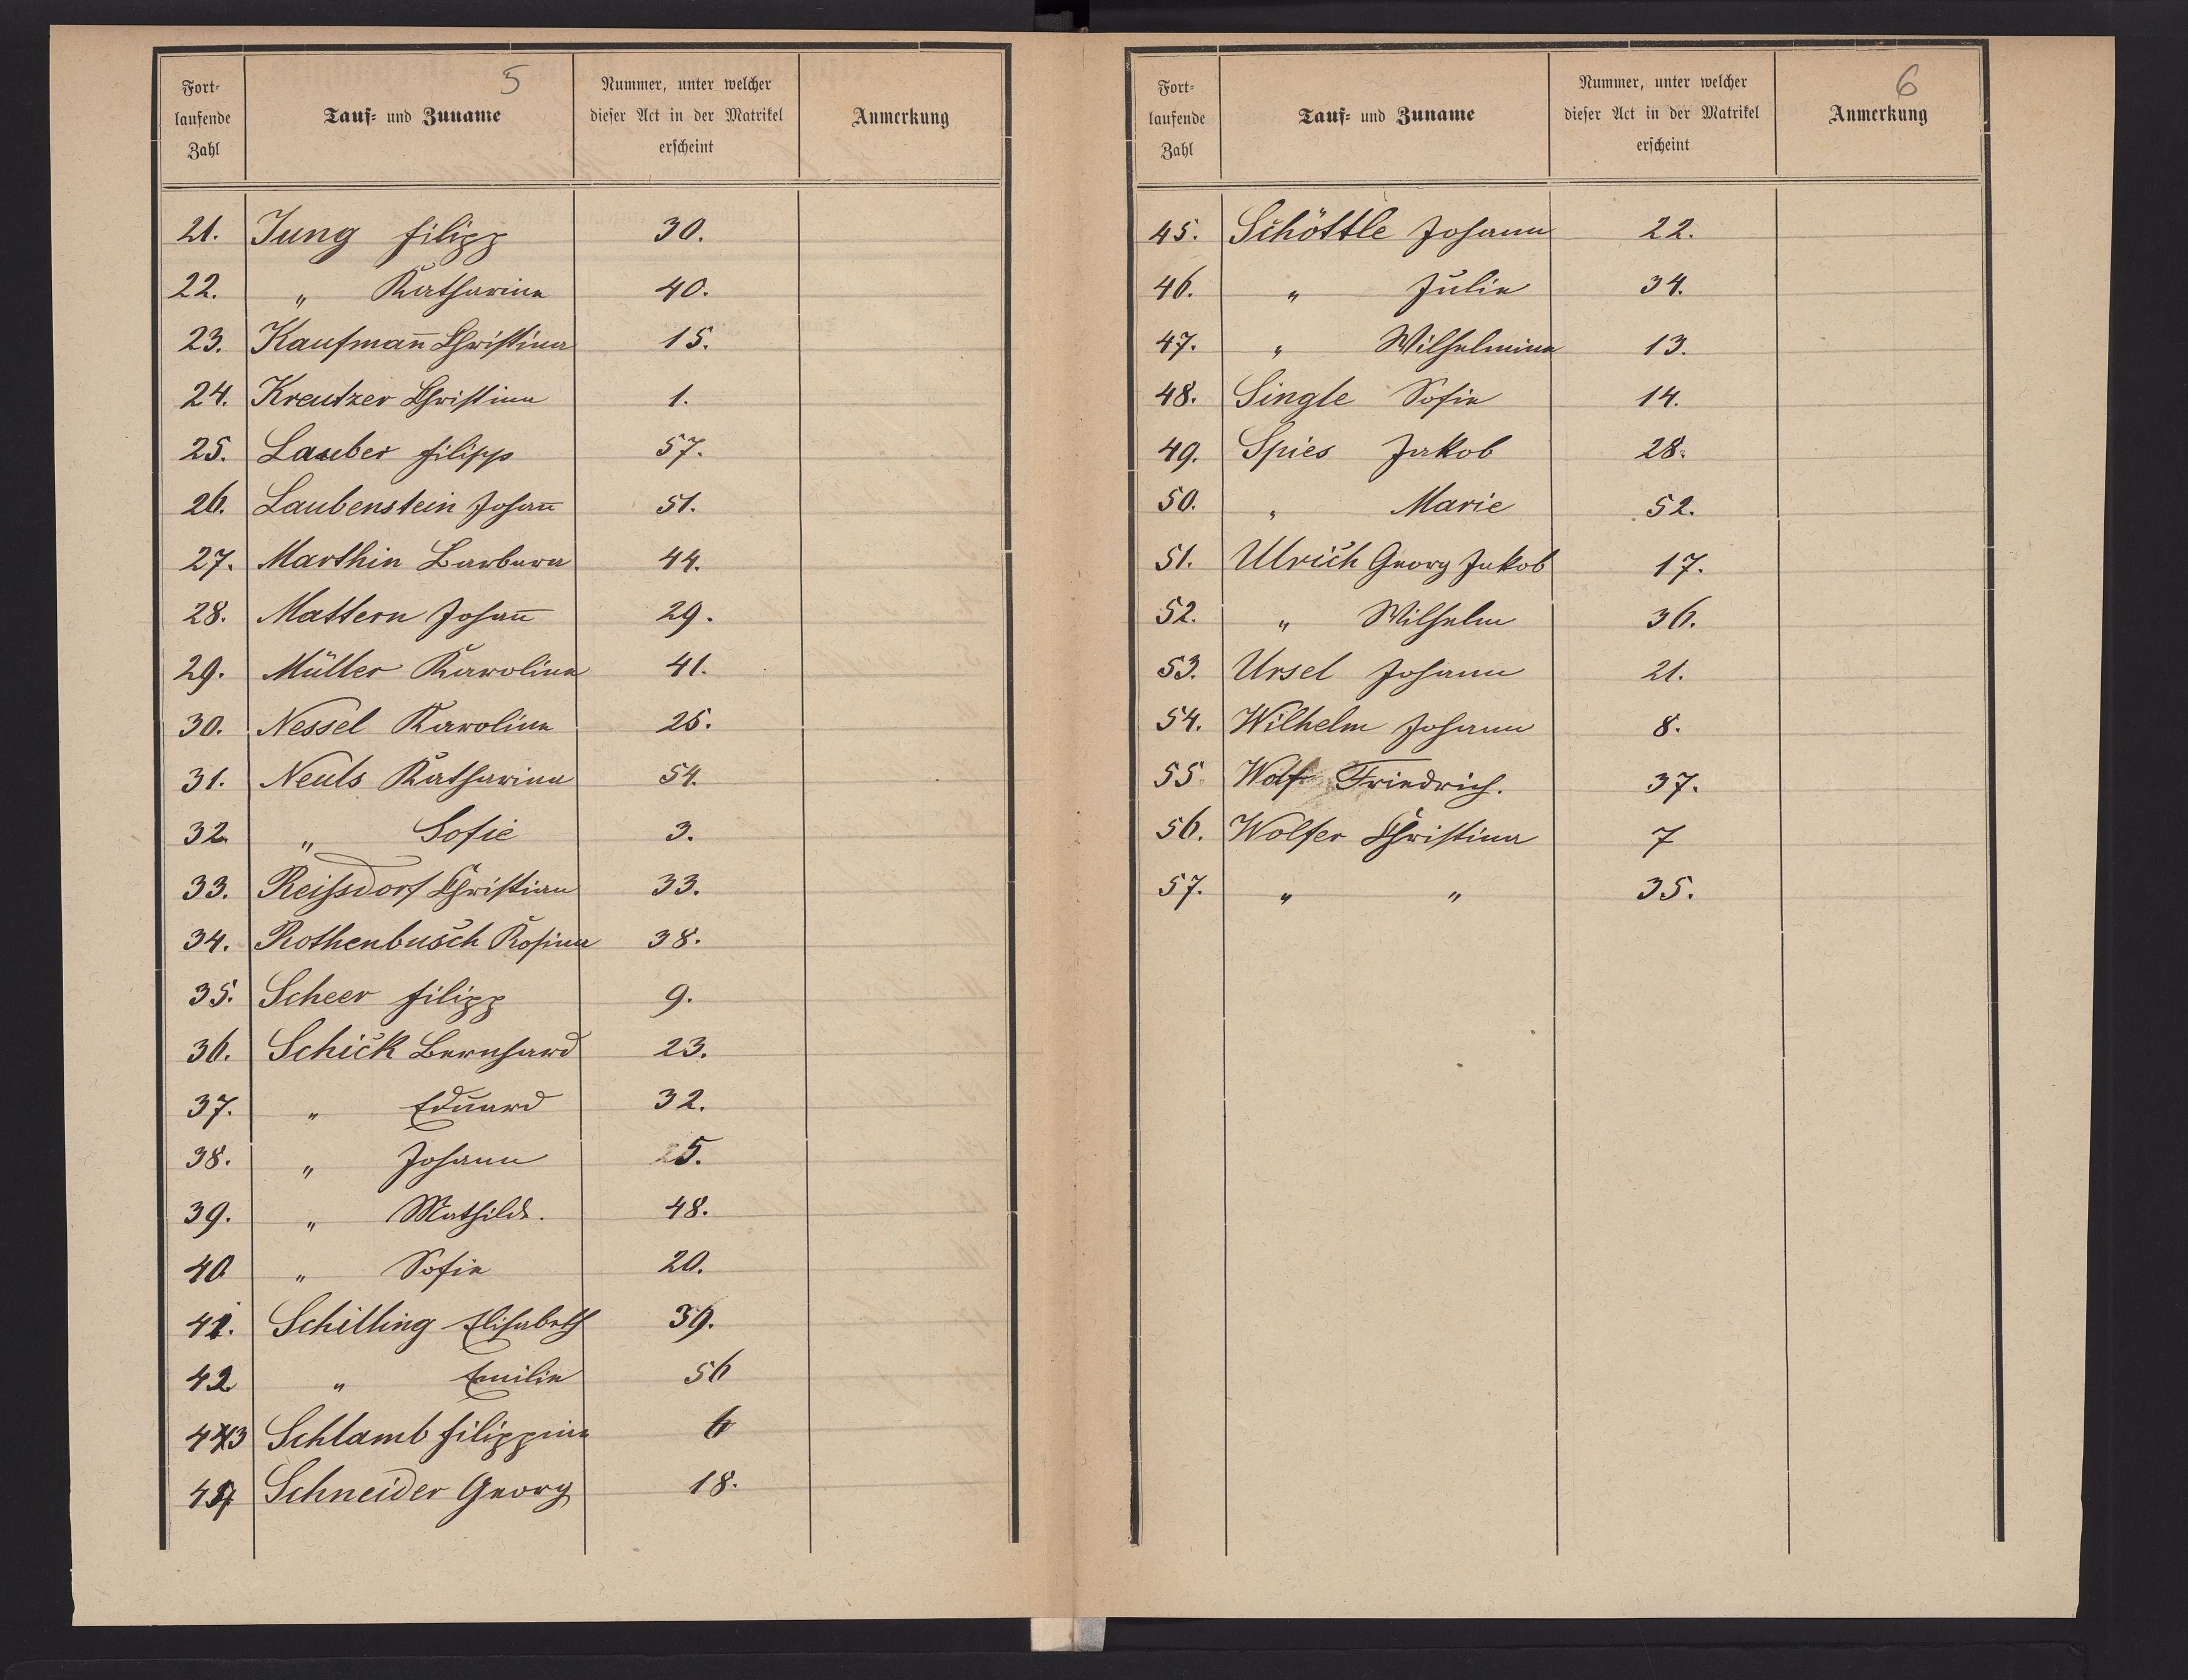 5
Fort-
laufende
Zahl
Tauf- und Zuname
Nummer, unter welcher
dieser Act in der Matrikel
erscheint
Anmerkung
21. Jung Filipp 30.
22. " Katharina 40.
23. Kaufman̄ Christina 15.
24. Kreutzer Christina 1.
25. Lauber Filipp 57.
26. Laubenstein Johan̄ 51.
27. Marthin Barbara 44.
28. Mattern Johan̄ 29.
29. Müller Karolina 41.
30. Nessel Karolina 26.
31. Neuls Katharina 54.
32. " Sofie 3.
33. Reißdorf Christian 33.
34. Rothenbusch Rosina 38.
35. Scheer Filipp 9.
36. Schick Bernhard 23.
37. " Eduard 32.
38. " Johann 5.
39. " Mathilde. 48.
40 " Sofie 20.
41. Schilling Elisabeth 39.
42 " Emilie 56
43 Schlamb Filippine 6
44 Schneider Georg 18.
6
Fort-
laufende
Zahl
Tauf- und Zuname
Nummer, unter welcher
dieser Act in der Matrikel
erscheint
Anmerkung
45. Schöttle Johann 22.
46. " Julie 34.
47. " Wilhelmina 13.
48. Single Sofie 14.
49. Spies Jakob 28.
50. " Marie 52.
51. Ulrich Georg Jakob 17.
52. " Wilhelm 36.
53. Ursel Johann 21.
54. Wilhelm Johann 8.
55 Wolf Friedrich. 37.
56. Wolfer Christina 7
57. " " 35.